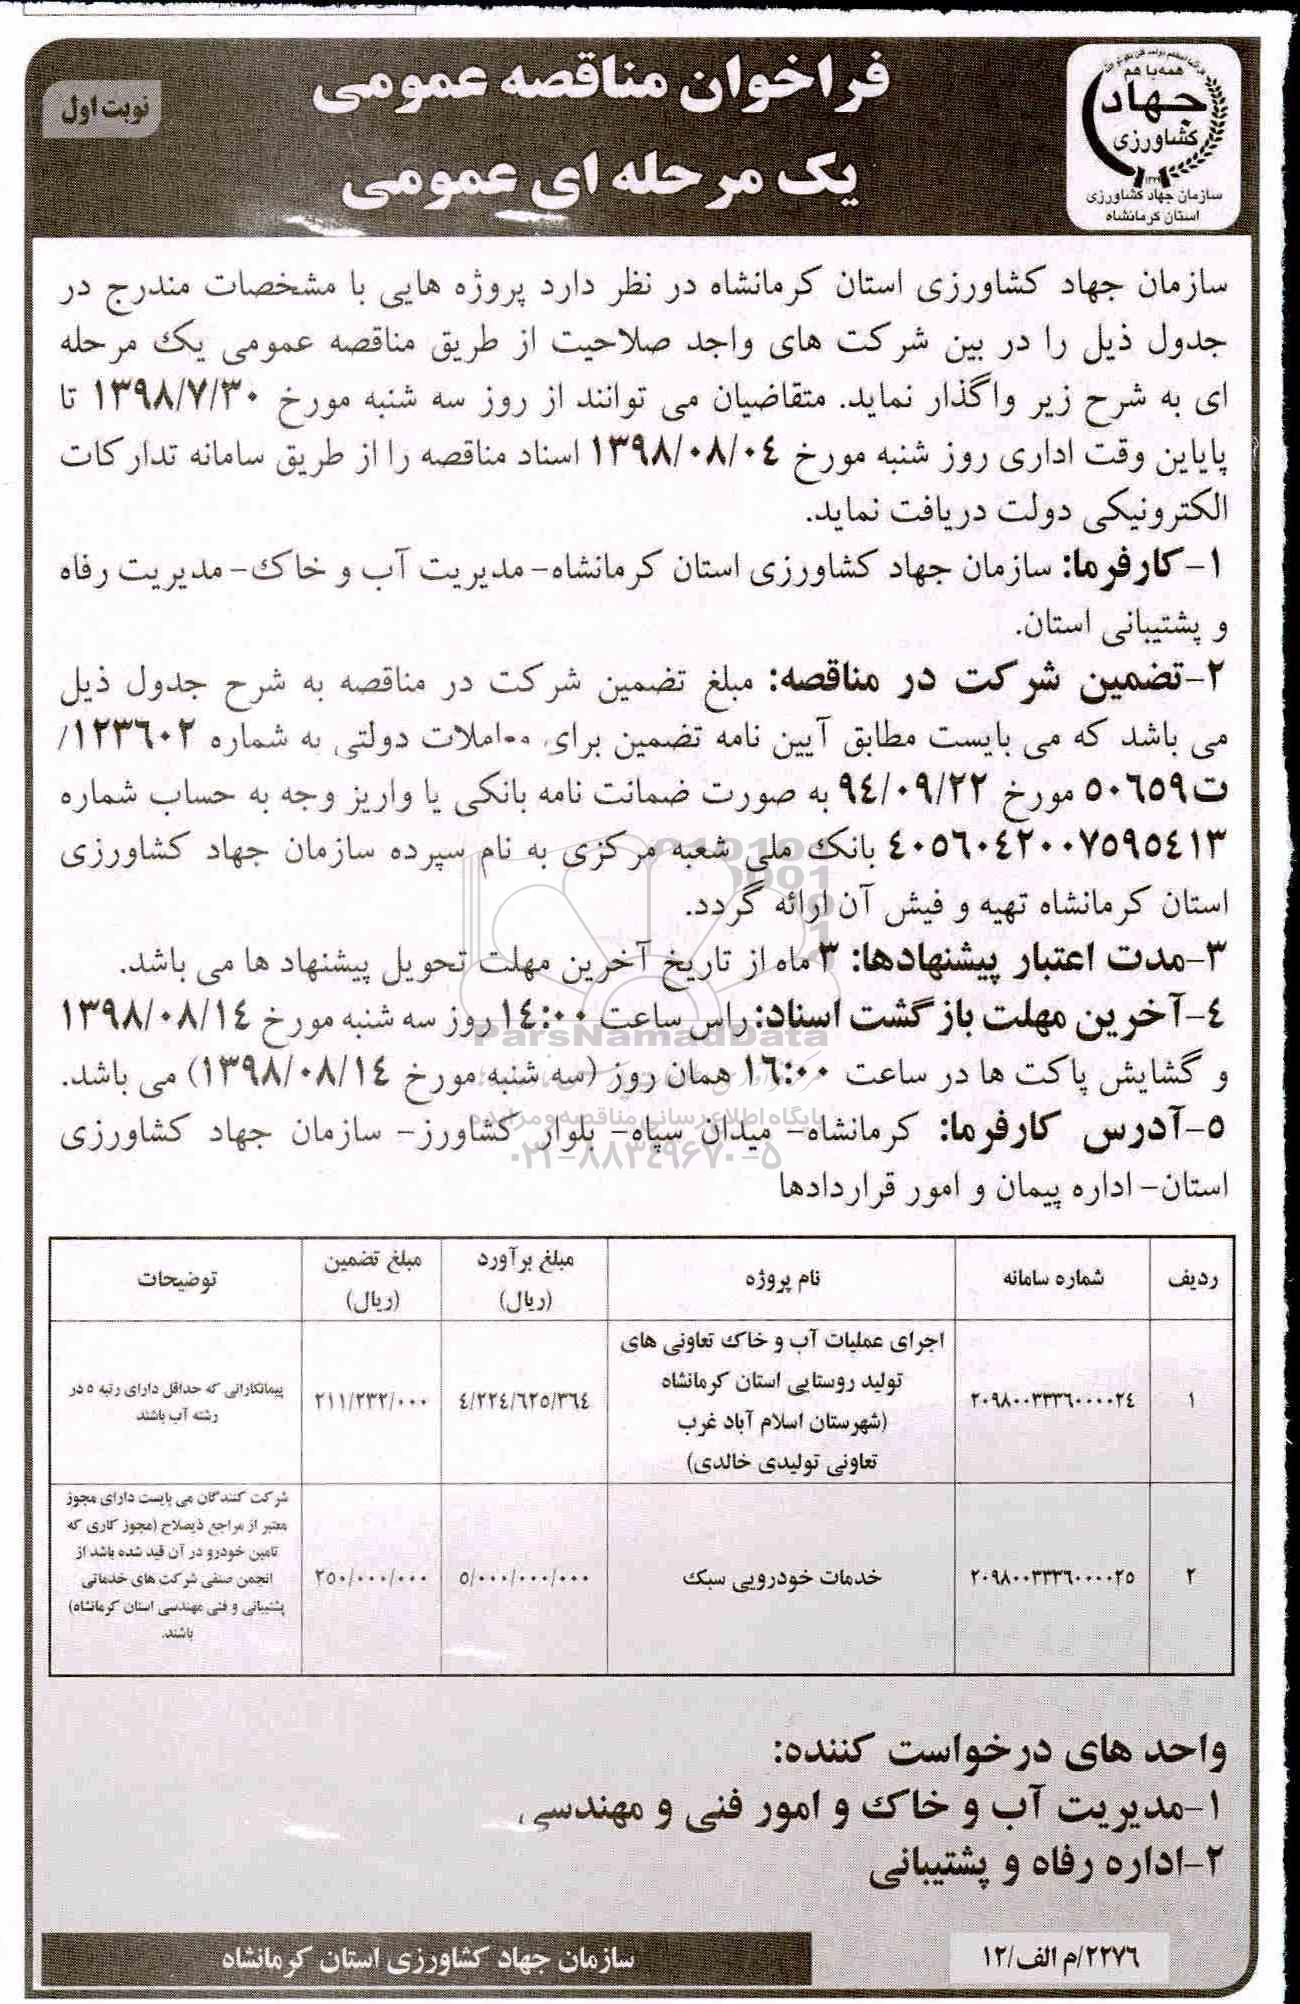 همه با هم
جهاد
کشاورزی
سازمان جهاد کشاورزی
استان کرمانشاه
فراخوان مناقصه عمومی
یک مرحله ای عمومی
نوبت اول
سازمان جهاد کشاورزی استان کرمانشاه در نظر دارد پروژه هایی با مشخصات مندرج در
جدول ذیل را در بین شرکت های واجد صلاحیت از طریق مناقصه عمومی یک مرحله
ای به شرح زیر واگذار نماید. متقاضیان می توانند از روز سه شنبه مورخ ۱۳۹۸/۷/۳۰ تا
پایاین وقت اداری روز شنبه مورخ ۱۳۹۸/۰۸/۰۴ اسناد مناقصه را از طریق سامانه تدارکات
الکترونیکی دولت دریافت نماید.
۱-کارفرما: سازمان جهاد کشاورزی استان کرمانشاه- مدیریت آب و خاک- مدیریت رفاه
و پشتیبانی استان.
۲-تضمین شرکت در مناقصه: مبلغ تضمین شرکت در مناقصه به شرح جدول ذیل
می باشد که می بایست مطابق آیین نامه تضمین برای معاملات دولتی به شماره ۱۲۳۶۰۲/
ت۵۰۶۵۹ مورخ ۹۴/۰۹/۲۲ به صورت ضمانت نامه بانکی یا واریز وجه به حساب شماره
۴۰۵۶۰۴۲۰۰۷۵۹۵۴۱۳ بانک ملی شعبه مرکزی به نام سپرده سازمان جهاد کشاورزی
استان کرمانشاه تهیه و فیش آن ارائه گردد.
۳-مدت اعتبار پیشنهادها: ۳ ماه از تاریخ آخرین مهلت تحویل پیشنهاد ها می باشد.
۴-آخرین مهلت بازگشت اسناد: راس ساعت ۱۴:۰۰ روز سه شنبه مورخ ۱۳۹۸/۰۸/۱۴
و گشایش پاکت ها در ساعت ۱۶:۰۰ همان روز (سه شنبه مورخ ۱۳۹۸/۰۸/۱۴) می باشد.
۵-آدرس کارفرما: کرمانشاه- میدان سپاه- بلوار کشاورز- سازمان جهاد کشاورزی
استان- اداره پیمان و امور قراردادها
ParsNamadData
پایگاه اطلاع رسانی مناقصه و مزایده
۰۲۱-۸۸۳۴۹۶۷۰-۵
ردیف شماره سامانه نام پروژه مبلغ برآورد (ریال) مبلغ تضمین (ریال) توضیحات
۱ ۲۰۹۸۰۰۳۳۳۶۰۰۰۰۲۴ اجرای عملیات آب و خاک تعاونی های تولید روستایی استان کرمانشاه (شهرستان اسلام آباد غرب تعاونی تولیدی خالدی) ۴/۲۲۴/۶۲۵/۳۶۴ ۲۱۱/۲۳۲/۰۰۰ پیمانکارانی که حداقل دارای رتبه ۵ در رشته آب باشند
۲ ۲۰۹۸۰۰۳۳۳۶۰۰۰۰۲۵ خدمات خودرویی سبک ۵/۰۰۰/۰۰۰/۰۰۰ ۲۵۰/۰۰۰/۰۰۰ شرکت کنندگان می بایست دارای مجوز معتبر از مراجع ذیصلاح (مجوز کاری که تامین خودرو در آن قید شده باشد از انجمن صنفی شرکت های خدماتی پشتیبانی و فنی مهندسی استان کرمانشاه) باشند.
واحد های درخواست کننده:
۱-مدیریت آب و خاک و امور فنی و مهندسی
۲-اداره رفاه و پشتیبانی
۲۲۷۶/م الف/۱۲
سازمان جهاد کشاورزی استان کرمانشاه